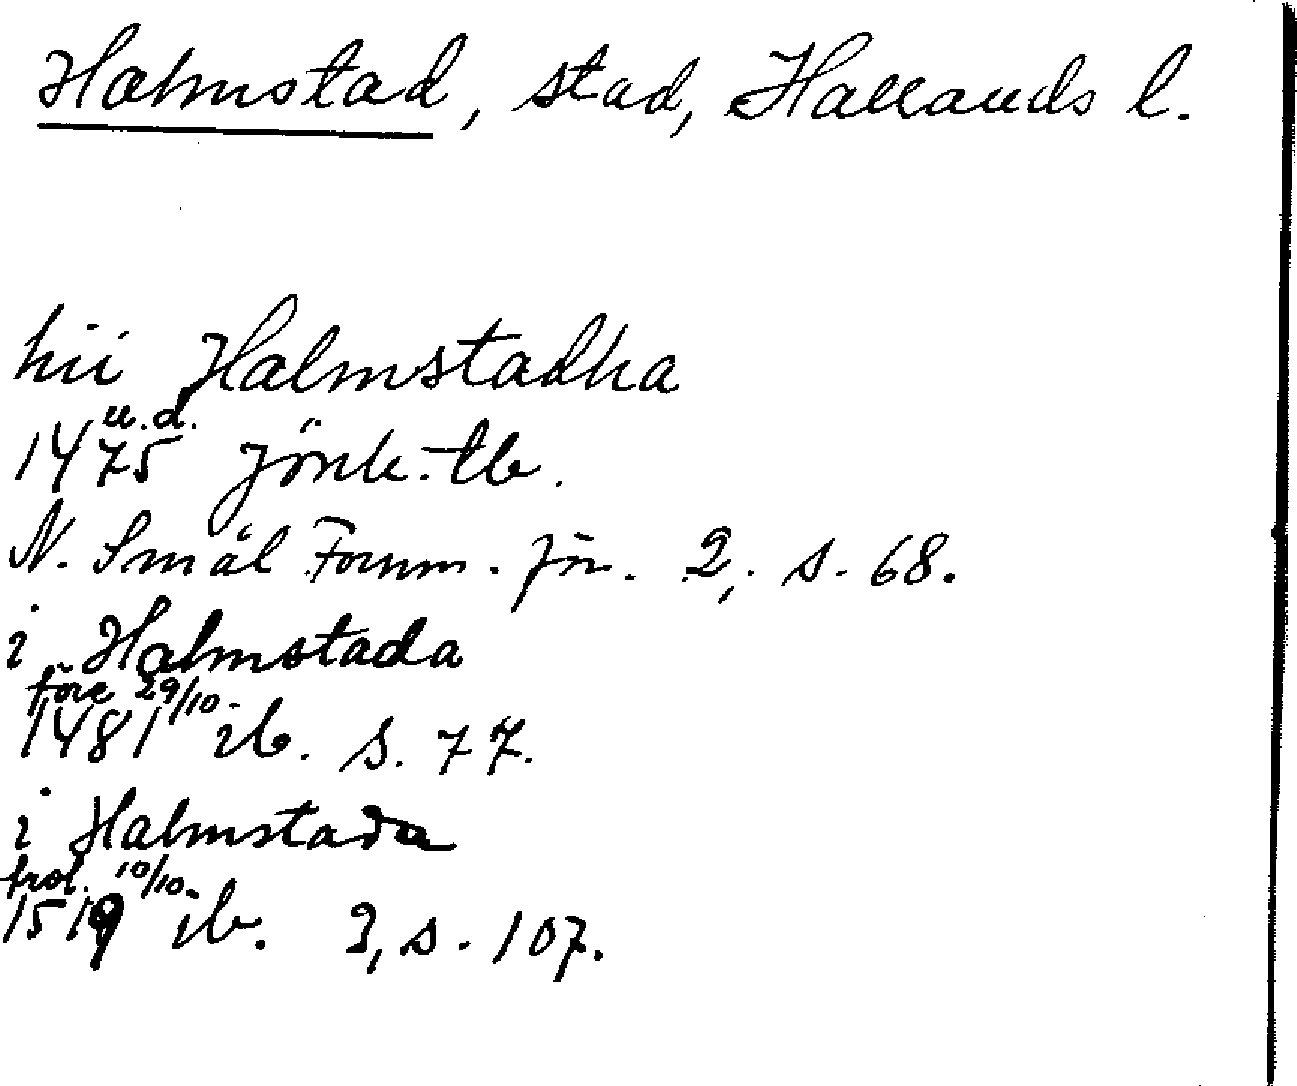 Halmstad, stad, Hallands l.
hii Halmstadha
u.d.
1475 Jönk. tb.
N. Smål Fornm. för. 2, s. 68.
i Halmstada
före 29/10
1481 ib. s. 77.
i Halmstada
trol. 10/10
1519 ib. 3, s. 107.